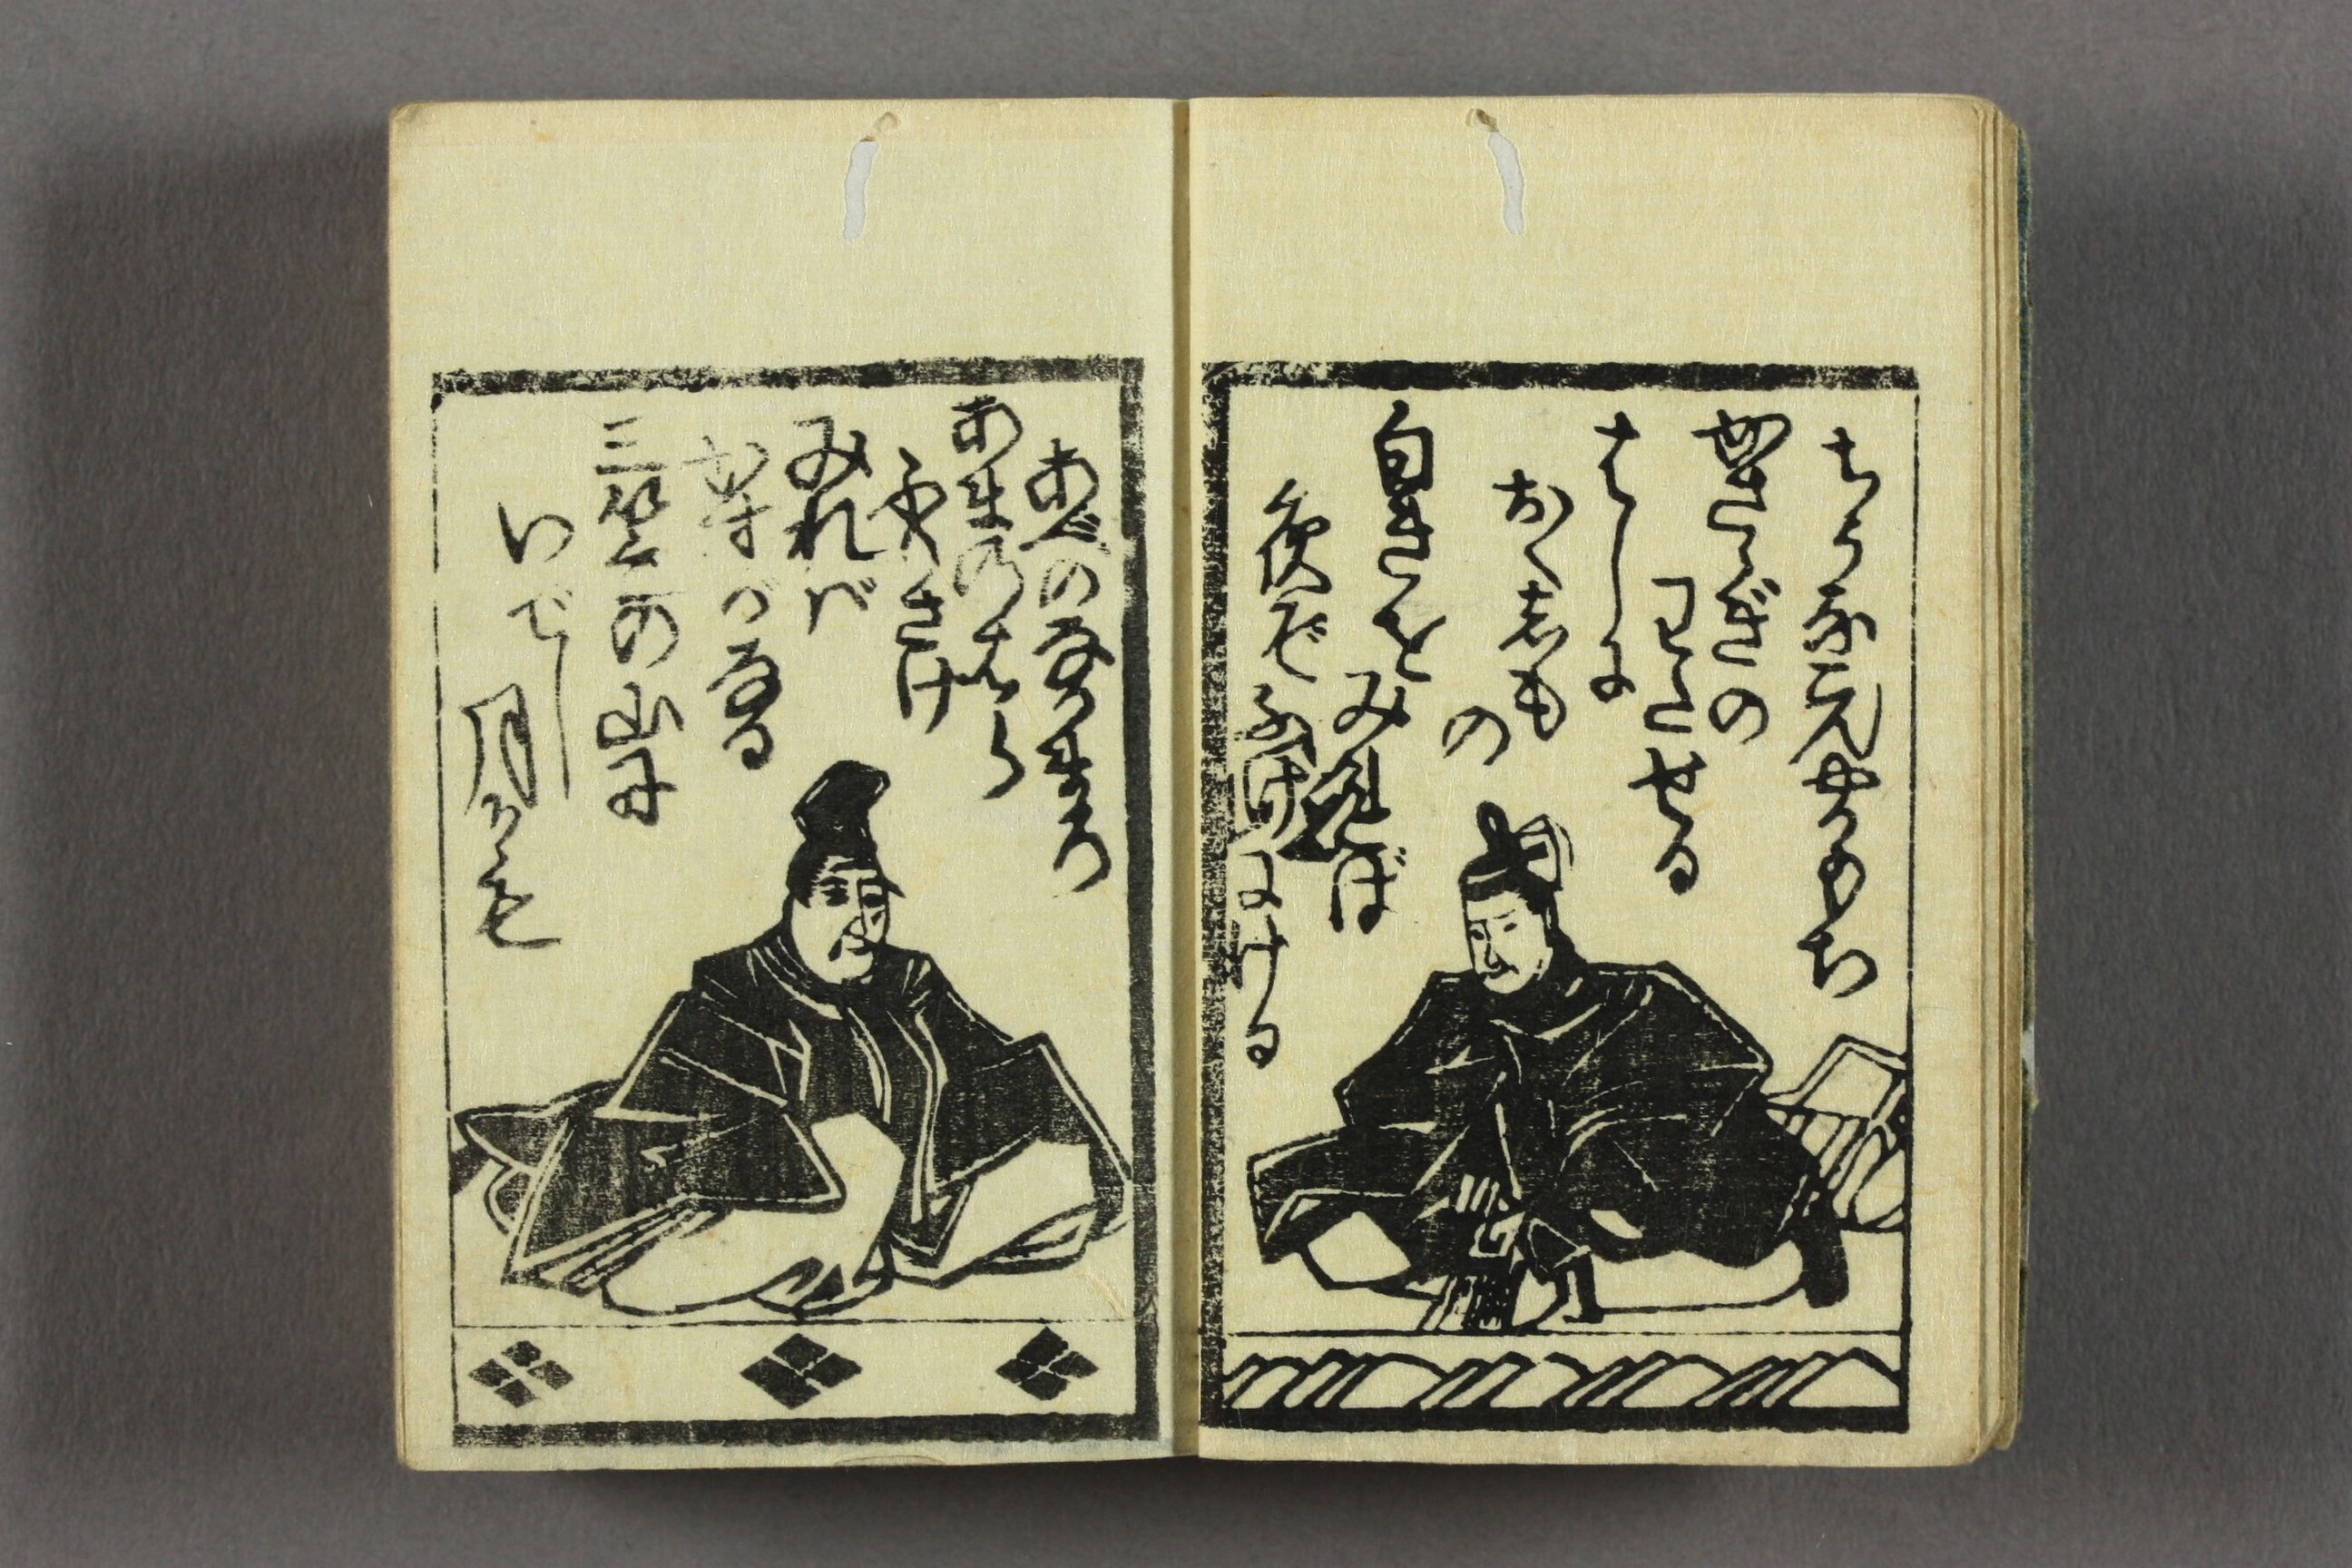 ちうなごんやかもち
かささぎの
わたせる
はしに
おく志も
の
白きを
み連ば
夜ぞ
ふけにける
あべのなかまろ
あまのはら
ふりさけ
みれば
かすがなる
三笠の山に
いでし
月かも